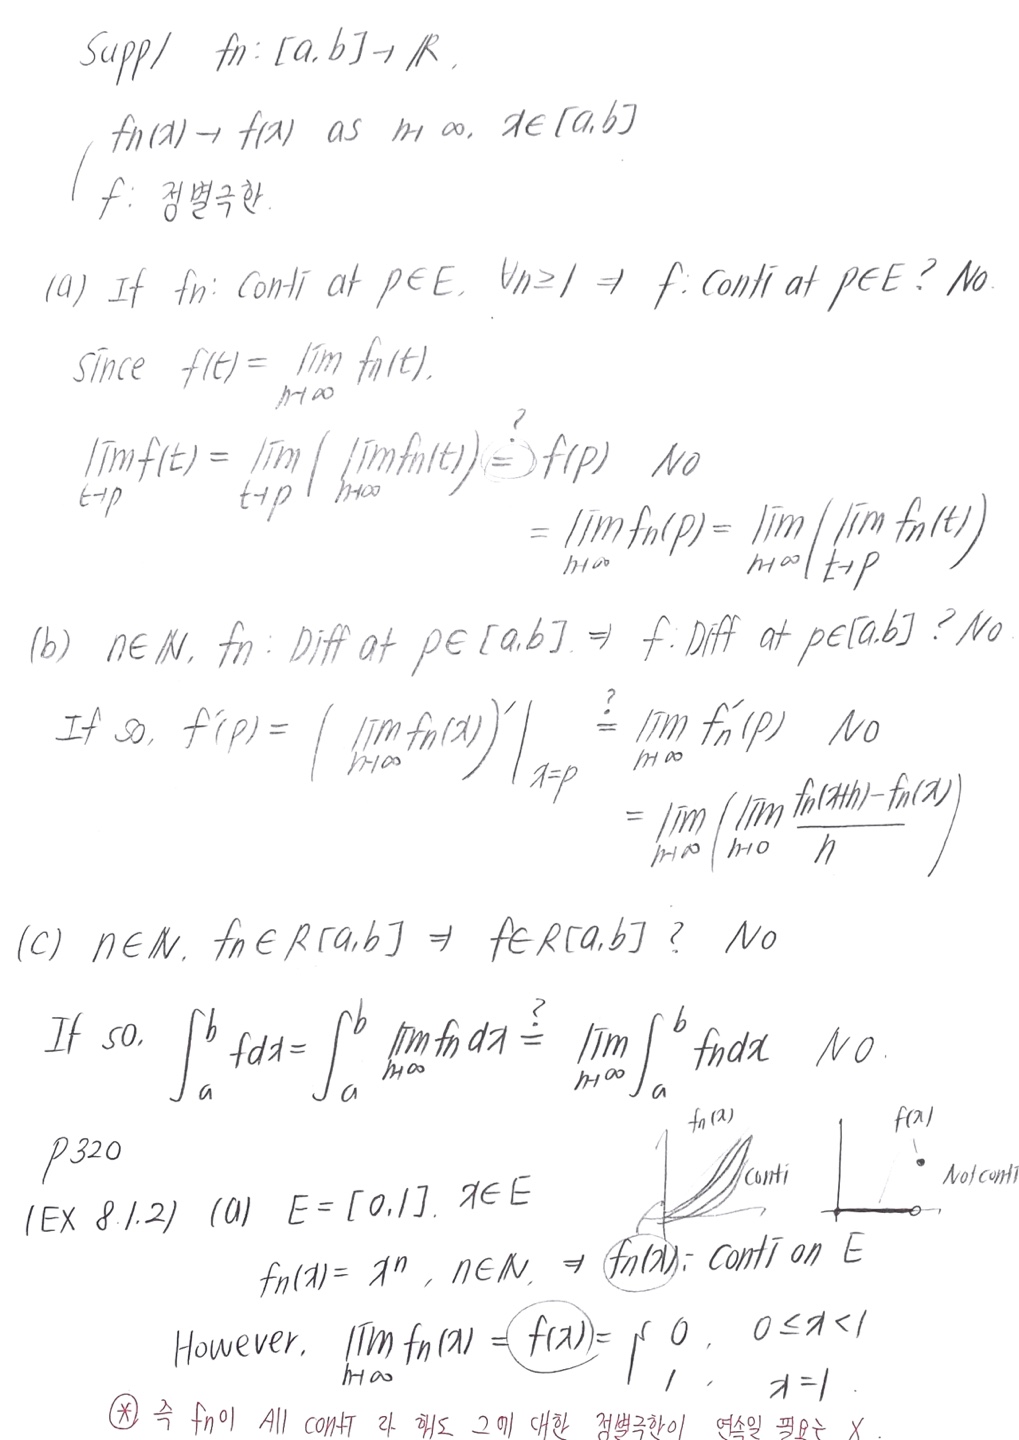 Supp) fn: [a,b] → ℝ.
fn(x) → f(x) as n→∞, x∈[a,b]
f: 점별극한.
(a) If fn: conti at p∈E, ∀n≥1 ⇒ f: conti at p∈E? No.
since f(t) = lim_{n→∞} fn(t).
lim_{t→p} f(t) = lim_{t→p} ( lim_{n→∞} fn(t) ) =? f(p) No
= lim_{n→∞} fn(p) = lim_{n→∞} ( lim_{t→p} fn(t) )
(b) n∈ℕ, fn: Diff at p∈[a,b]. ⇒ f: Diff at p∈[a,b]? No
If so, f′(p) = ( lim_{n→∞} fn(x) )′ |_{x=p} =? lim_{n→∞} fn′(p) No
= lim_{n→∞} ( lim_{h→0} (fn(x+h)-fn(x))/h )
(c) n∈ℕ, fn∈R[a,b] ⇒ f∈R[a,b]? No
If so, ∫_a^b fdx = ∫_a^b lim_{n→∞} fn dx =? lim_{n→∞} ∫_a^b fndx No.
fn(x) f(x)
conti Not conti
P320
(EX 8.1.2) (a) E = [0,1]. x∈E
fn(x) = xⁿ, n∈ℕ, ⇒ fn(x): conti on E
However, lim_{n→∞} fn(x) = f(x) = { 0, 0≤x<1
1, x=1.
⊛ 즉 fn이 All conti 라 해도 그에 대한 점별극한이 연속일 필요는 X.